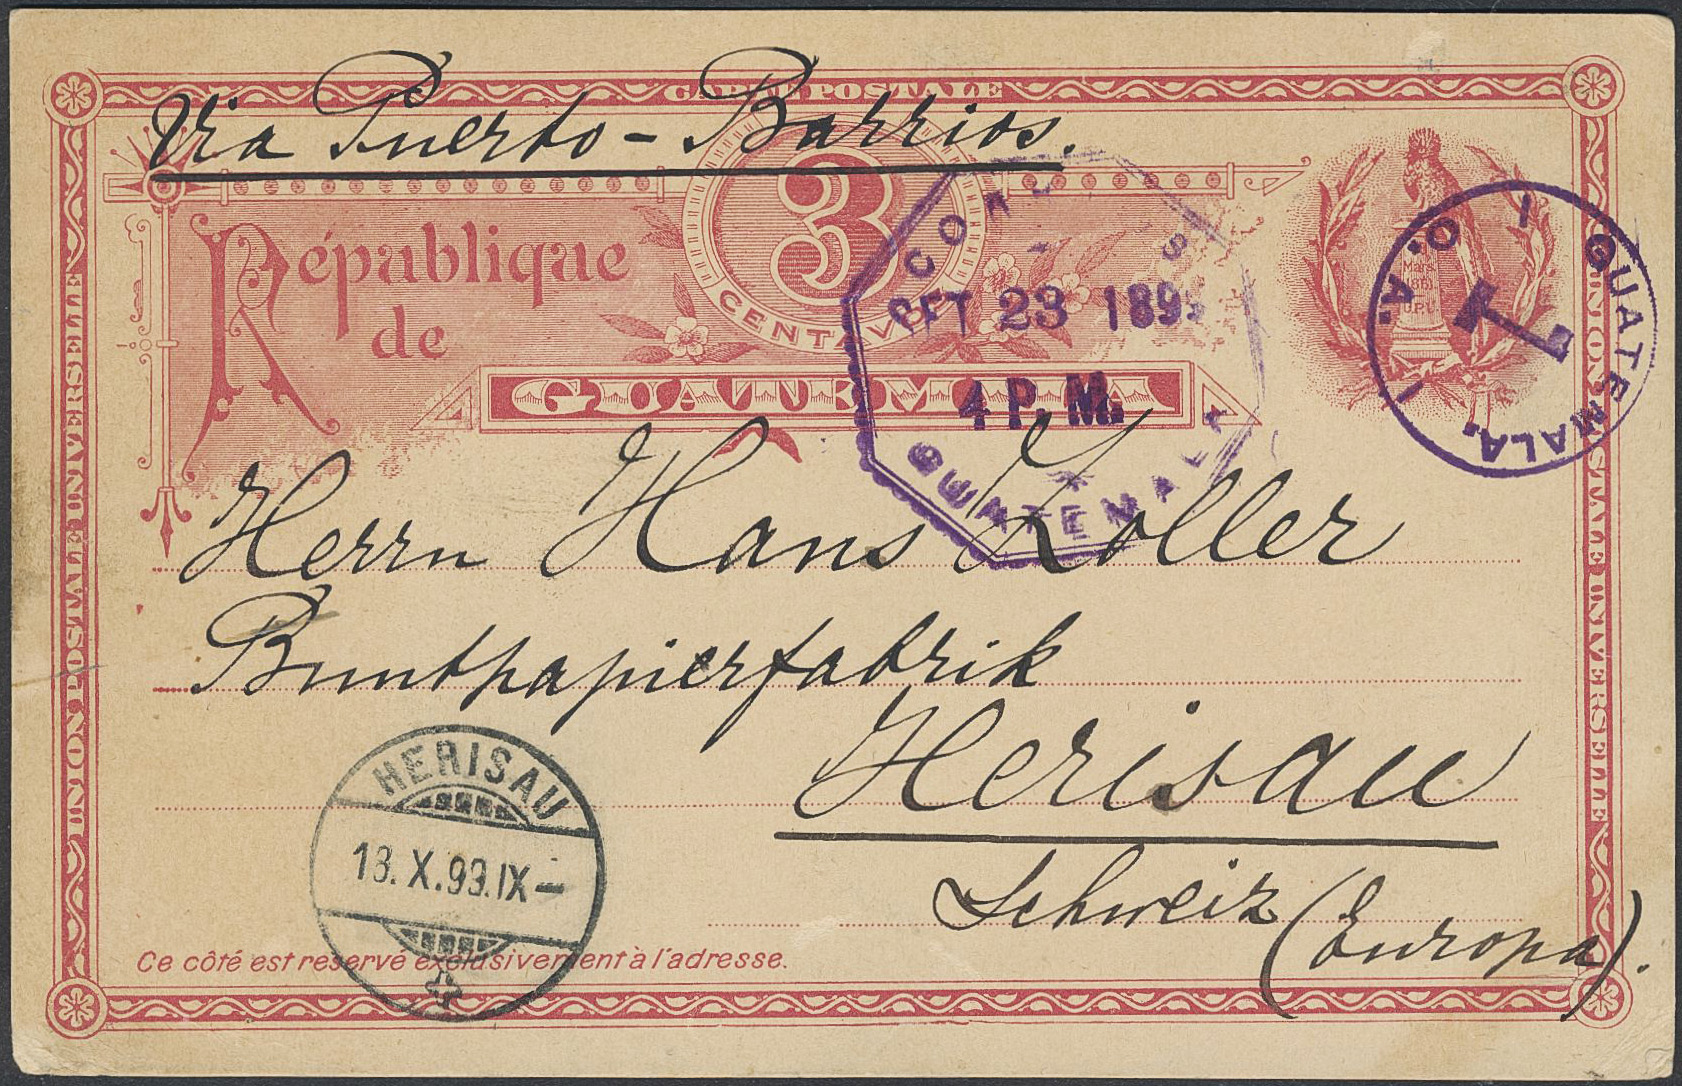 CARTE POSTALE
Via Puerto-Barrios.
3
CENTAVOS
République
de
GUATEMALA
Mars
1861
C.P.U.
23 189
4 P.M.
GUATEMALA
GUATEMALA.
C. A.
Herrn Hans Koller
Buntpapierfabrik
Herisau
Schweiz (Europa).
HERISAU
13. X. 99. IX-
Ce côté est reservé exclusivement à l'adresse.
UNION POSTALE UNIVERSELLE
UNION POSTALE UNIVERSELLE